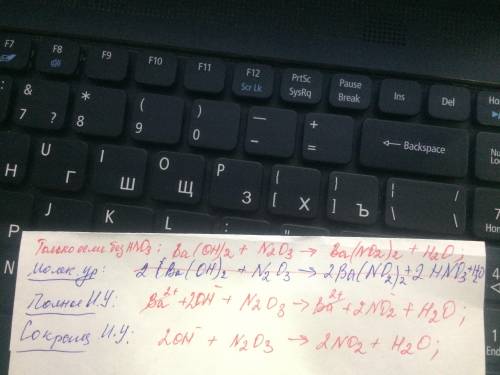 F7 F8 F9 F10 F11 F12 Scr Lk PrtSc SysRq Pause Break Ins Del
& 7 ? * 8 ( 9 ) 0 — - + = <— Backspace
U Г I Ш O Щ P З { [ Х } ] Ъ | \ /
Н J K N
Только соли без HNO3: Ba(OH)2 + N2O3 → Ba(NO2)2 + H2O;
Молек ур: Ba(OH)2 + N2O3 → 2Ba(NO2)2 + 2HNO3 + H2O
Полное И.У: Ba2+ + 2OH- + N2O3 → Ba2+ + 2NO2- + H2O;
Сокращ И.У: 2OH- + N2O3 → 2NO2 + H2O;